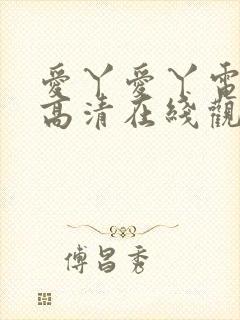 愛丫愛丫電
高清在綫觀
傅昌秀